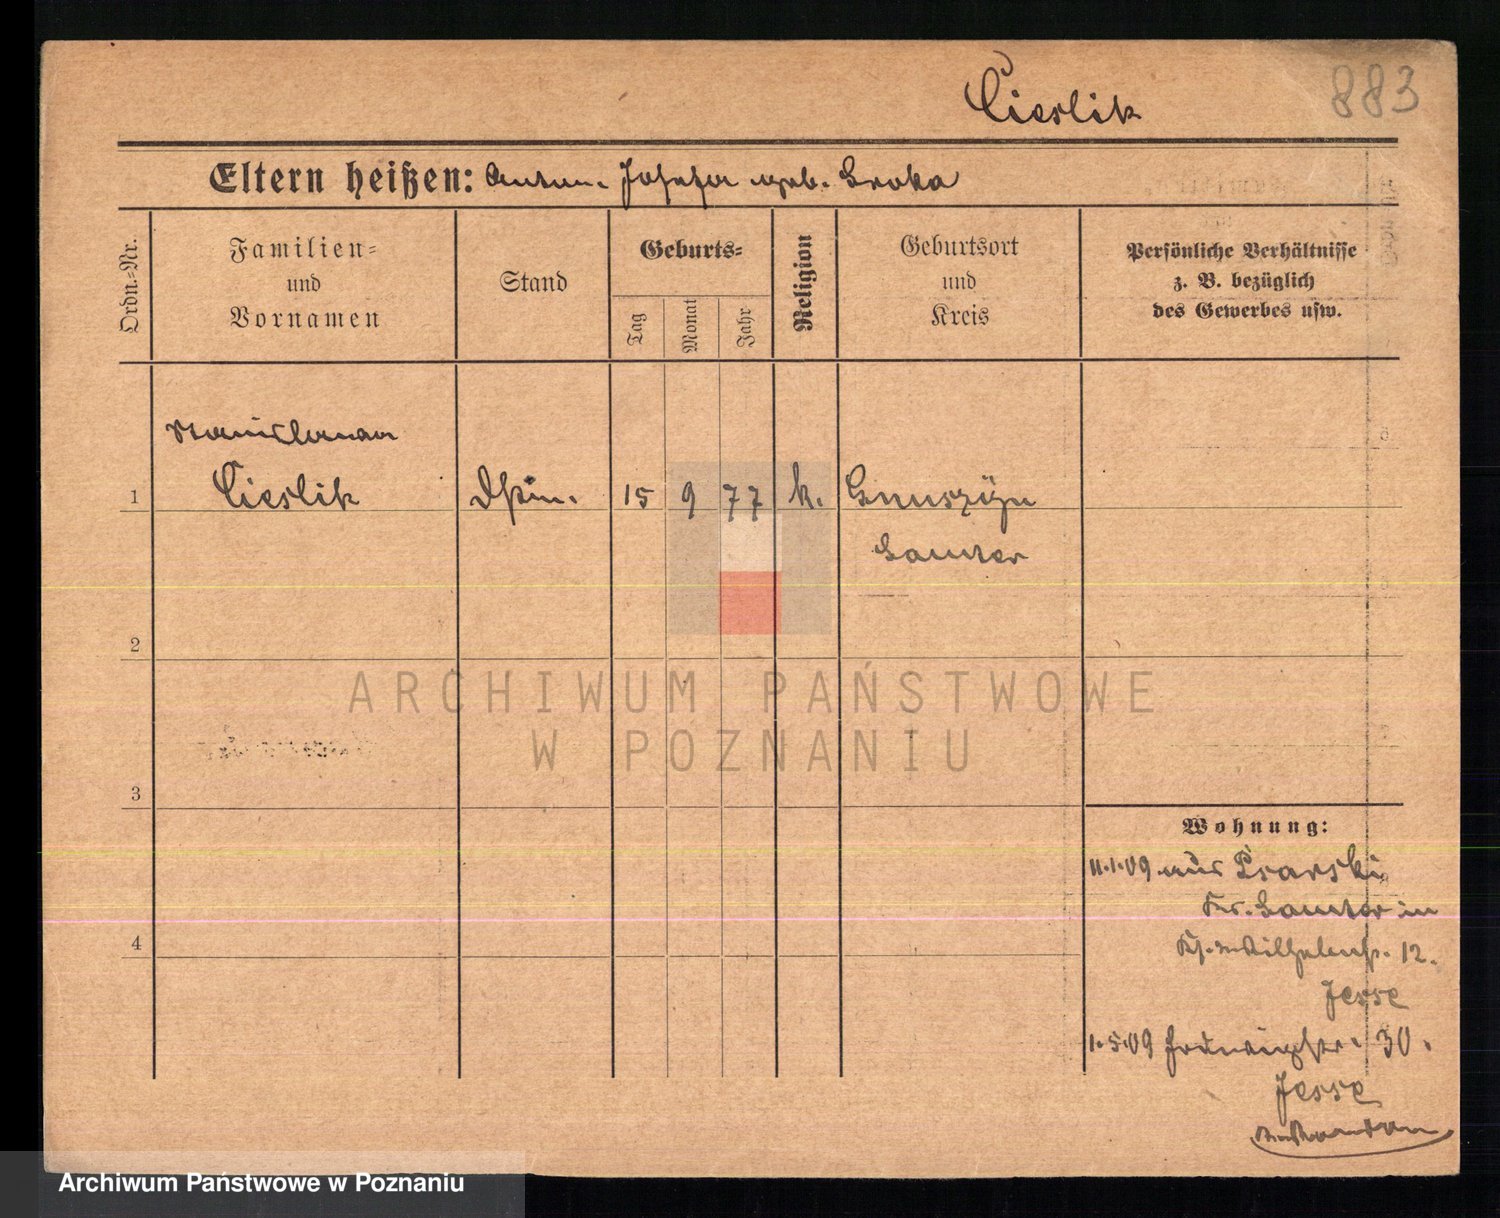 Cieslik
883
Eltern heißen: Anton. Josefa geb. Sroka
Ordn.-Nr.
Familien-
und
Vornamen
Stand
Geburts-
Tag
Monat
Jahr
Religion
Geburtsort
und
Kreis
Persönliche Verhältnisse
z. B. bezüglich
des Gewerbes usw.
Stanislawa
1 Cieslik 15 9 77 k.
Samter
2
ARCHIWUM PAŃSTWOWE
W POZNANIU
3
Wohnung:
11.1.09 aus Psarski
Kr. Samter in
12.
Jesse
4
1.5.09 Hedwigstr. 30.
Jesse
Archiwum Państwowe w Poznaniu